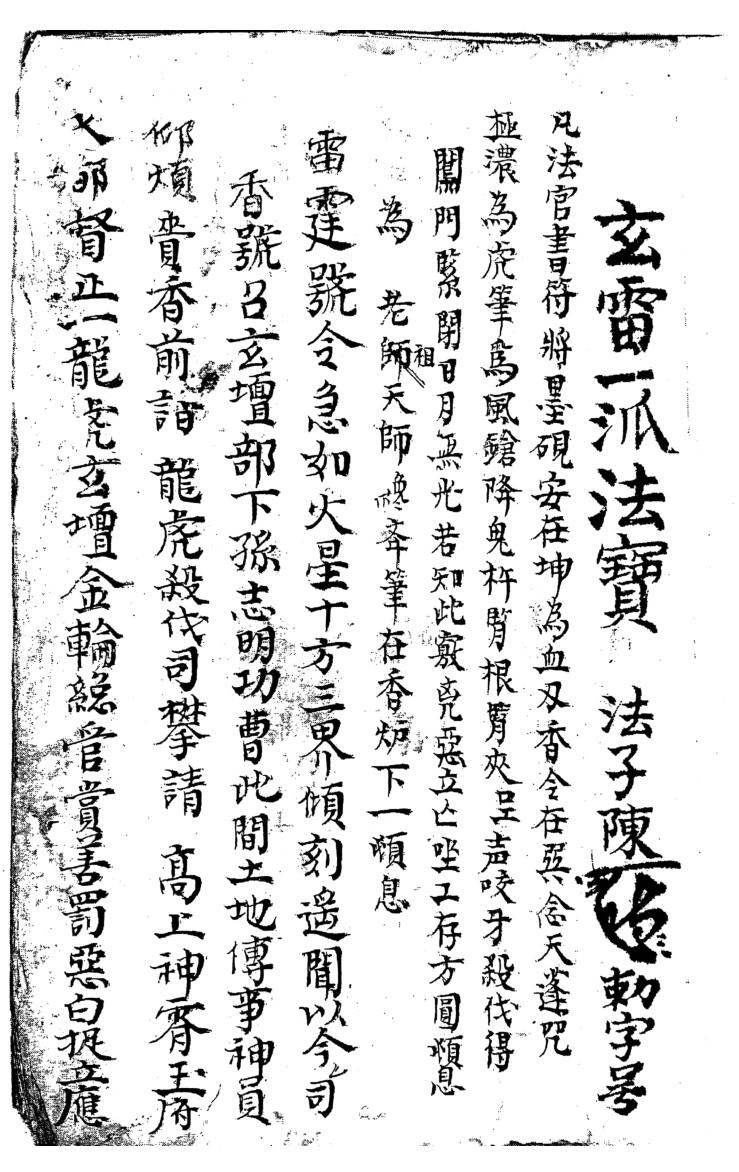 玄雷一派法寶　法子陳　勅字号
凡法官書符將墨硯安在坤為血刃香令在巽念天蓬咒
極濃為虎筆為風鎗降鬼杵腎根腎夾呈声咬牙殺伐得
門緊閉日月無光若知此竅亮惡立亡坐工存方圓頫息
為　老師祖天師　齊筆在香炉下一頫息
雷霆號令急如火星十方三界傾刻遥聞以今司
香號召玄壇部下孫志明功曹此間土地傳事神員
仰煩賫香前詣　龍虎殺伐司攀請　高上神霄玉府
大都督正一龍虎玄壇金輪総官賞善罰惡白捉立應